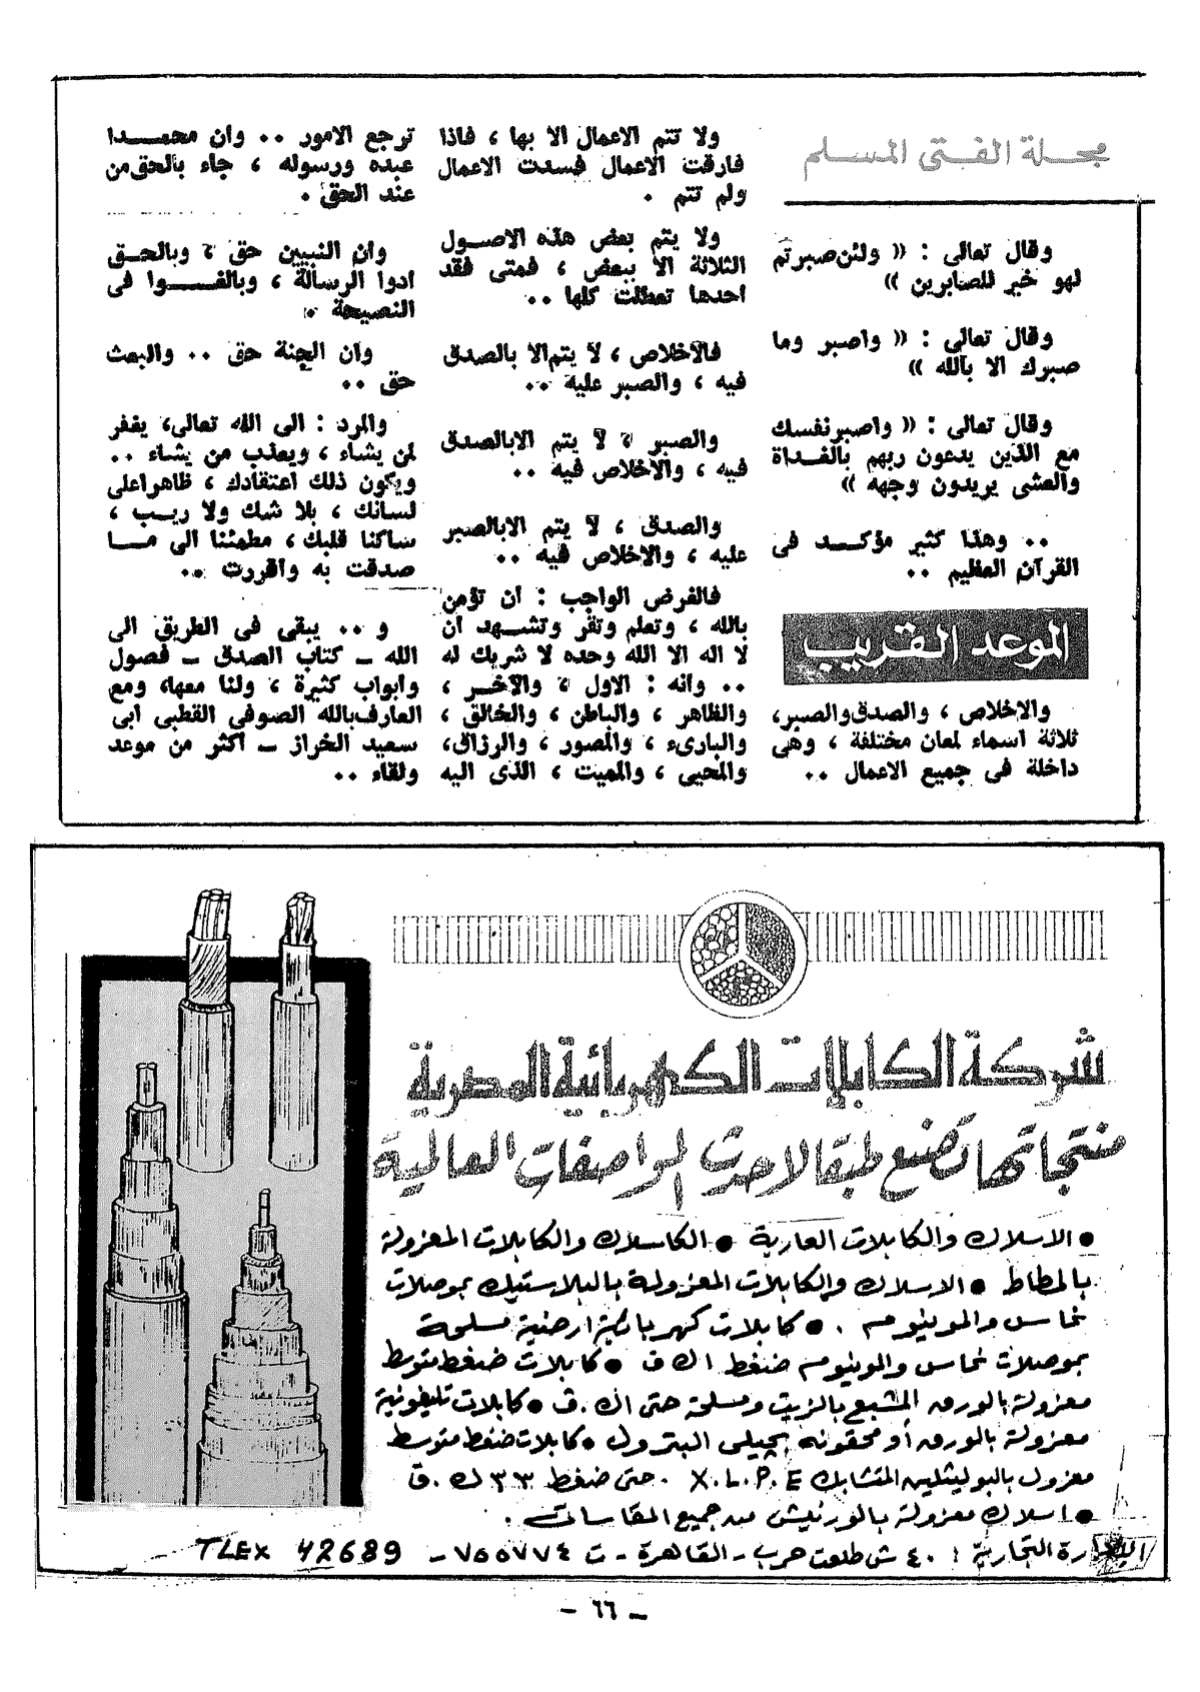 مجلة الفتى المسلم
وقال تعالى : « ولئن صبرتم
لهو خير للصابرين »
وقال تعالى : « واصبر وما
صبرك الا بالله »
وقال تعالى : « واصبر نفسك
مع الذين يدعون ربهم بالغداة
والعشى يريدون وجهه »
.. وهذا كثير مؤكد فى
القرآن العظيم ..
الموعد القريب
والاخلاص ، والصدق والصبر،
ثلاثة اسماء لمعان مختلفة ، وهى
داخلة فى جميع الاعمال ..
ولا تتم الاعمال الا بها ، فاذا
فارقت الاعمال فسدت الاعمال
ولم تتم .
ولا يتم بعض هذه الاصول
الثلاثة الا ببعض ، فمتى فقد
احدها تعطلت كلها ..
فالاخلاص ، لا يتم الا بالصدق
فيه ، والصبر عليه ..
والصبر ، لا يتم الا بالصدق
فيه ، والاخلاص فيه ..
والصدق ، لا يتم الا بالصبر
عليه ، والاخلاص فيه ..
فالفرض الواجب : أن تؤمن
بالله ، وتعلم وتقر وتشهد أن
لا اله الا الله وحده لا شريك له
.. وانه : الاول ، والآخر ،
والظاهر ، والباطن ، والخالق ،
والبارىء ، والمصور ، والرزاق،
والمحيى ، والمميت ، الذى اليه
ترجع الامور .. وان محمدا
عبده ورسوله ، جاء بالحق من
عند الحق .
وان النبيين حق ، وبالحق
ادوا الرسالة ، وبالغوا فى
النصيحة .
وان الجنة حق .. والبعث
حق ..
والمرد : الى الله تعالى، يغفر
لمن يشاء ، ويعذب من يشاء ..
ويكون ذلك اعتقادك ، ظاهرا على
لسانك ، بلا شك ولا ريب ،
ساكنا قلبك، مطمئنا الى ما
صدقت به واقررت ..
و .. يبقى فى الطريق الى
الله ــ كتاب الصدق ــ فصول
وابواب كثيرة ، ولنا معها، ومع
العارف بالله الصوفى القطبى ابى
سعيد الخراز ــ اكثر من موعد
ولقاء ..
شركة الكابلات الكهربائية المصرية
منتجاتها تصنع طبقا لاحدث المواصفات العالمية
● الاسلاك والكابلات العارية ● الكاسلاك والكابلات المعزولة
بالمطاط ● الاسلاك والكابلات المعزولة بالبلاستيك بموصلات
نحاس والمونيوم . ● كابلات كهربائية ارضية مسلحة
بموصلات نحاس والمونيوم ضغط ١ ك ف ● كابلات ضغط متوسط
معزولة بالورق المشبع بالزيت ومسلحة حتى ١١ ك.ف ● كابلات تليفونية
معزولة بالورق أو محقونه بجيلى البترول ● كابلات ضغط متوسط
معزول بالبوليثلين المتشابك X.L.P.E حتى ضغط ٣٣ ك.ق
● اسلاك معزولة بالورنيش من جميع المقاسات .
الادارة التجارية : ٤٠ ش طلعت حرب - القاهرة - ت ٧٥٥٧٧٤ - TLEX 42689
- ٦٦ -